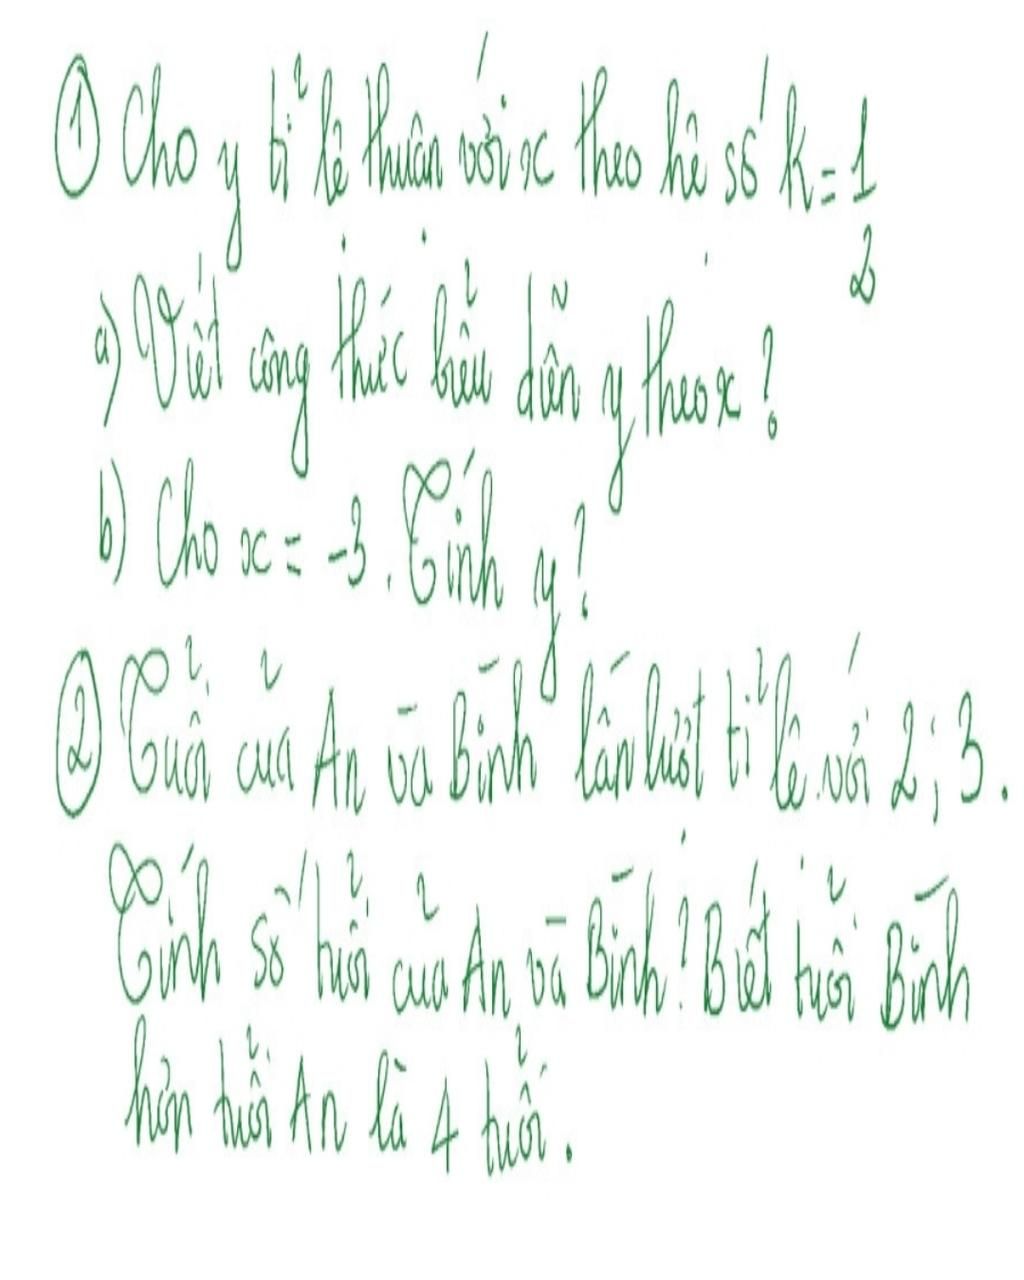 ① Cho y tỉ lệ thuận với x theo hệ số k = 1/2
a) Viết công thức biểu diễn y theo x?
b) Cho x = -3. Tính y?
② Tuổi của An và Bình lần lượt tỉ lệ với 2; 3.
Tính số tuổi của An và Bình? Biết tuổi Bình
hơn tuổi An là 4 tuổi.